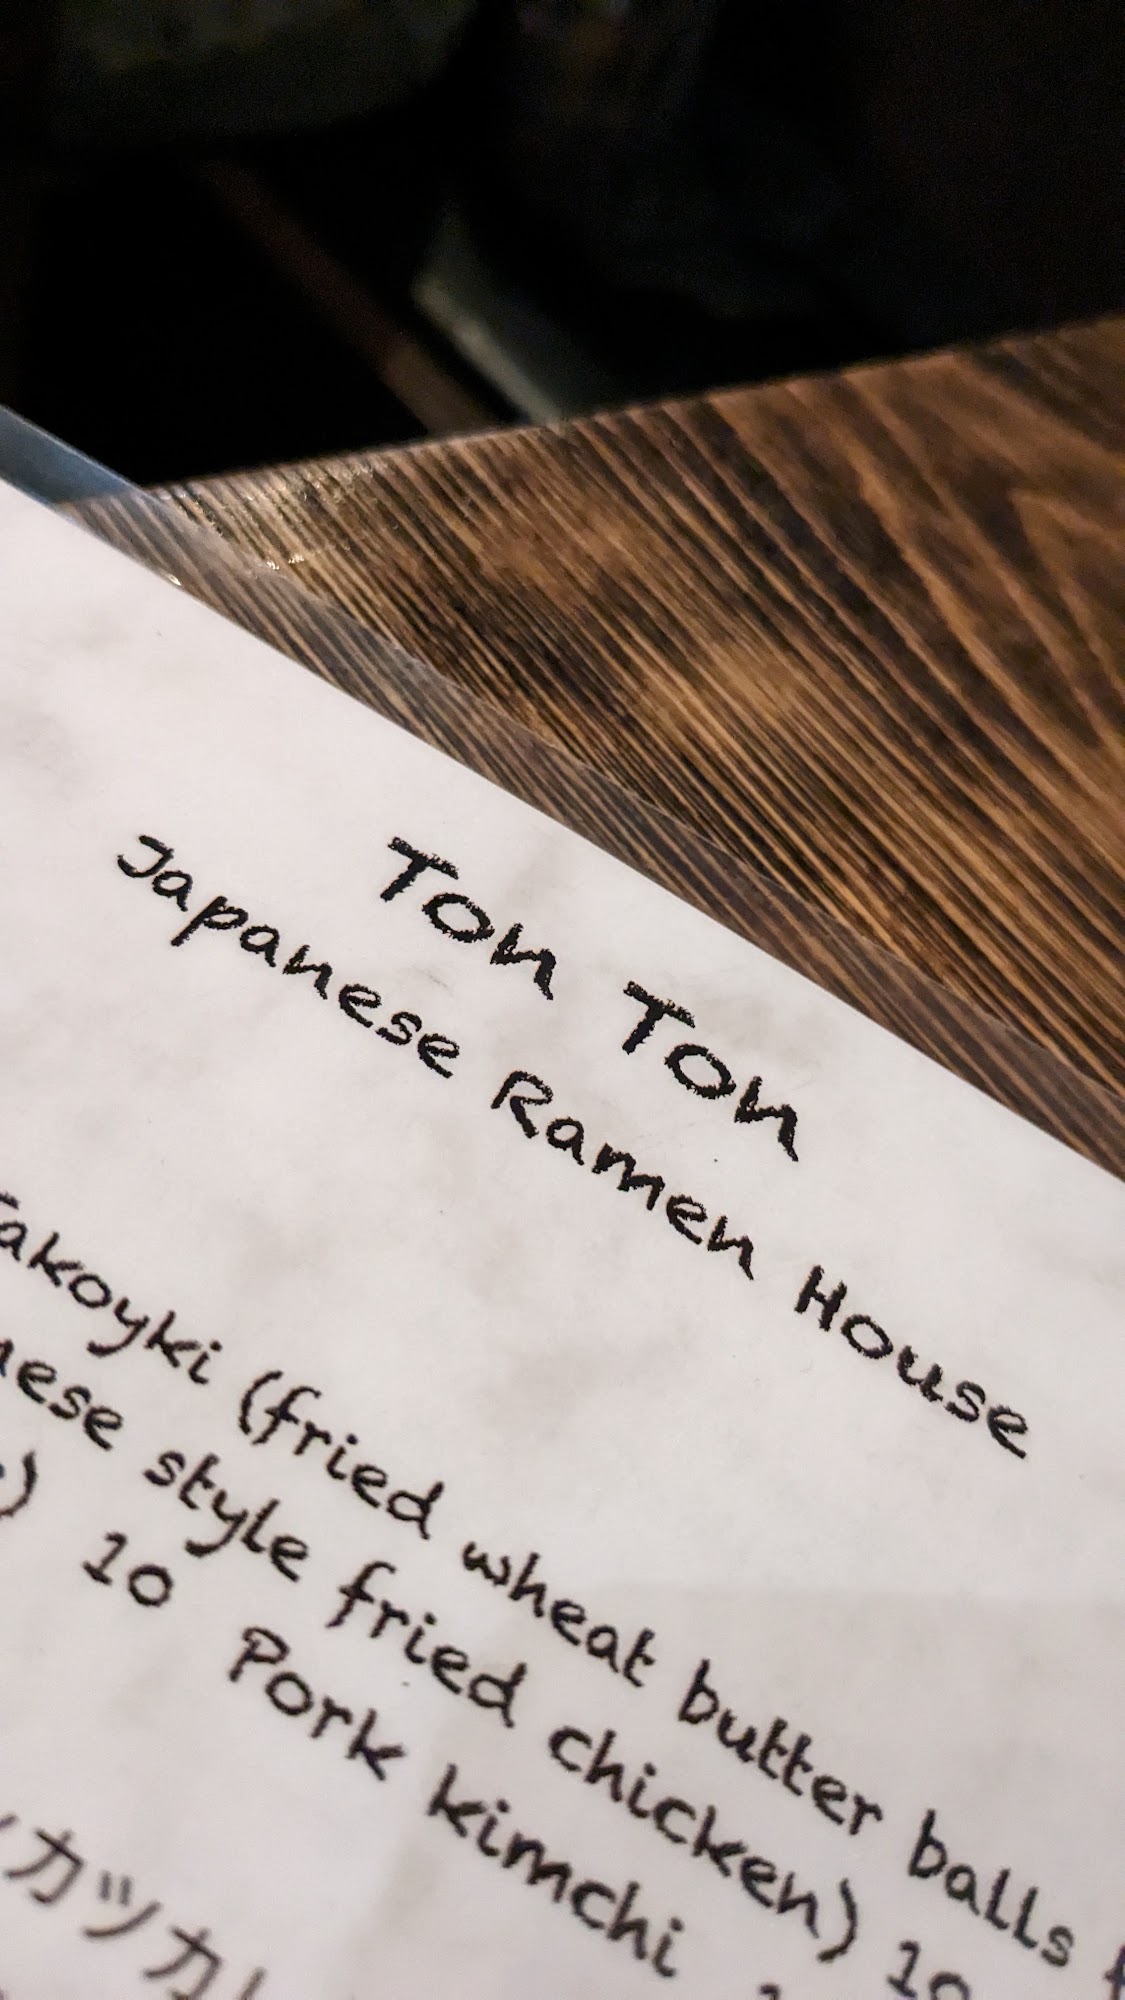 Ton Ton
Japanese Ramen House
Takoyki (fried wheat butter balls
style fried chicken) 10
10 Pork kimchi
カツカ